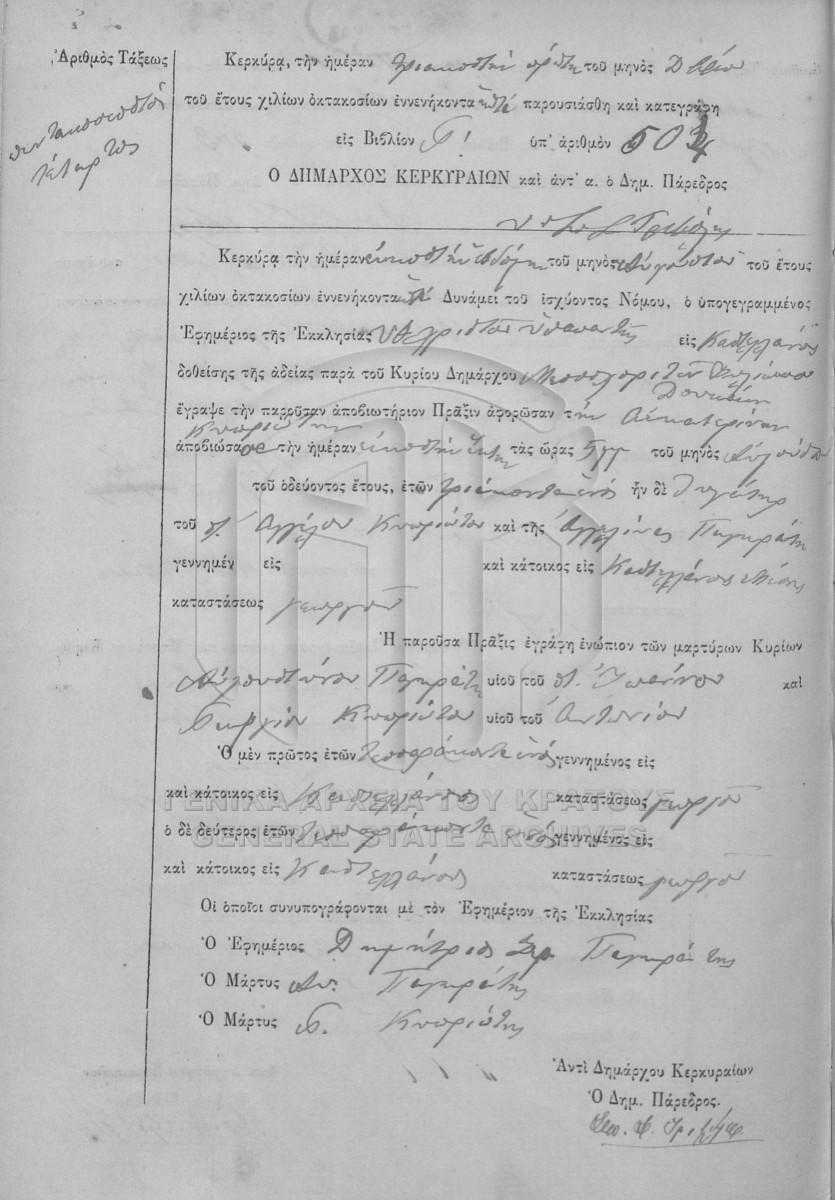 Ἀριθμὸς Τάξεως
πεντακοσιοστὸς
τέταρτος
Κερκύρᾳ, τὴν ἡμέραν τριακοστὴν πρώτην τοῦ μηνὸς
τοῦ ἔτους χιλίων ὀκτακοσίων ἐννενήκοντα ἑπτά παρουσιάσθη καὶ κατεγράφη
εἰς Βιβλίον ὑπ' ἀριθμὸν 504
Ο ΔΗΜΑΡΧΟΣ ΚΕΡΚΥΡΑΙΩΝ καὶ ἀντ' α. ὁ Δημ. Πάρεδρος
Κερκύρᾳ τὴν ἡμέραν εἰκοστὴν ἑβδόμην τοῦ μηνὸς Αὐγούστου τοῦ ἔτους
χιλίων ὀκτακοσίων ἐννενήκοντα ἑπτά Δυνάμει τοῦ ἰσχύοντος Νόμου, ὁ ὑπογεγραμμένος
Ἐφημέριος τῆς Ἐκκλησίας Ὑπαπαντῆς εἰς Καστελλάνους
δοθείσης τῆς ἀδείας παρὰ τοῦ Κυρίου Δημάρχου
ἔγραψε τὴν παροῦσαν ἀποβιωτήριον Πρᾶξιν ἀφορῶσαν τὴν Αἰκατερίναν
Κυπριώτην
ἀποβιώσασα τὴν ἡμέραν εἰκοστὴν ἕκτην τὰς ὥρας 5 μμ τοῦ μηνὸς Αὐγούστου
τοῦ ὁδεύοντος ἔτους, ἐτῶν τριάκοντα ἑνός ἦν δὲ θυγάτηρ
τοῦ π. Ἀγγέλου Κυπριώτου καὶ τῆς Ἀγγελίνας Παγκράτη
γεννημέν εἰς καὶ κάτοικος εἰς Καστελλάνους Μέσης
καταστάσεως γεωργοῦ
Ἡ παροῦσα Πρᾶξις ἐγράφη ἐνώπιον τῶν μαρτύρων Κυρίων
Αὐγουστίνου Παγκράτη υἱοῦ τοῦ π. Ἰωάννου καὶ
Γεωργίου Κυπριώτου υἱοῦ τοῦ Ἀντωνίου
Ὁ μὲν πρῶτος ἐτῶν τεσσαράκοντα ἑνός γεννημένος εἰς
καὶ κάτοικος εἰς Καστελλάνους καταστάσεως γεωργοῦ
ὁ δὲ δεύτερος ἐτῶν τεσσαράκοντα ἑνός γεννημένος εἰς
καὶ κάτοικος εἰς Καστελλάνους καταστάσεως γεωργοῦ
Οἱ ὁποῖοι συνυπογράφονται μὲ τὸν Ἐφημέριον τῆς Ἐκκλησίας
Ὁ Ἐφημέριος Δημήτριος Ἱερ. Παγκράτης
Ὁ Μάρτυς Αυ. Παγκράτης
Ὁ Μάρτυς Γ. Κυπριώτης
Ἀντὶ Δημάρχου Κερκυραίων
Ὁ Δημ. Πάρεδρος.
ΓΕΝΙΚΑ ΑΡΧΕΙΑ ΤΟΥ ΚΡΑΤΟΥΣ
GENERAL STATE ARCHIVES